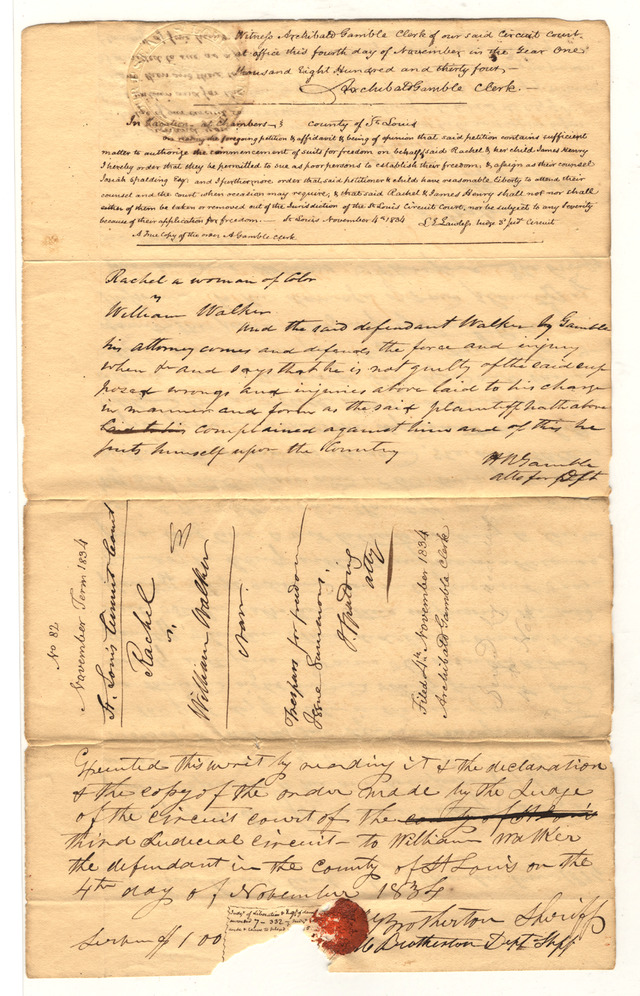 Witness Archibald Gamble Clerk of our said Circuit Court
at office this fourth day of November in the Year One
thousand Eight Hundred and thirty four,
Archibald Gamble Clerk.
In Vacation at Chambers County of St Louis
On reading the foregoing petition & affidavit & being of opinion that said petition contains sufficient
matter to authorize the commencement of suits for freedom on behalf said Rachel & her child James Henry
I hereby order that they be permitted to sue as poor persons to establish their freedom, & assign as their counsel
Josiah Spalding Esq. and I furthermore order that said petitioner & child have reasonable liberty to attend their
counsel and the court when occasion may require, & that said Rachel & James Henry shall not nor shall
either of them be taken or removed out of the Jurisdiction of the St Louis Circuit Court, nor be subject to any severity
because of their application for freedom. St Louis November 4th 1834 Judge 3d Jud Circuit
A True copy of the order A Gamble clerk.
Rachel a woman of Color
v
William Walker
and the said defendant Walker by Gamble
his attorney comes and defends the force and injury
when &c and says that he is not guilty of the said sup
posed wrongs and injuries above laid to his charge
in manner and form as the said plaintiff hath above
laid to his complained against him and of this he
puts himself upon the Country
H R Gamble
atto for Deft
No 82
November Term 1834
St. Louis Circuit Court
Rachel
vs.
William Walker
Nar.
Trespass for freedom
Issue Summons.
J. Spalding
atty
Filed 4th November 1834
Archibald Gamble Clerk
Executed this writ by reading it & the declaration
& the copy of the order made by the Judge
of the circuit court of the county of St Louis
third Judicial circuit - to William Walker
the defendant in the county of St Louis on the
4th day of November 1834.
Brotherton Sheriff
Service $1 00
Brotherton Dept Shff